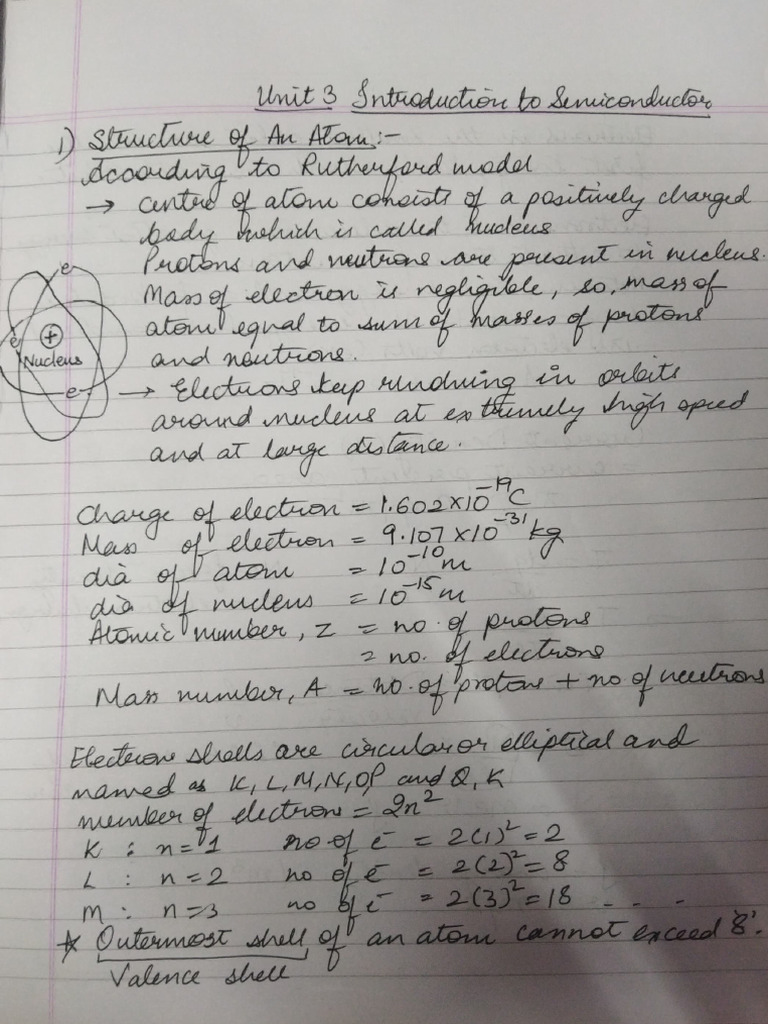 Unit 3 Introduction to Semiconductor
1) Structure of An Atom :-
According to Rutherford model
→ centre of atom consists of a positively charged
body which is called nucleus
Protons and neutrons are present in nucleus.
Mass of electron is negligible, so, mass of
atom equal to sum of masses of protons
and neutrons.
e-
e-
+
Nucleus
e-
→ Electrons keep rundning in orbits
around nucleus at extremely high speed
and at large distance.
Charge of electron = 1.602 × 10⁻¹⁹ C
Mass of electron = 9.107 × 10⁻³¹ kg
dia of atom = 10⁻¹⁰ m
dia of nucleus = 10⁻¹⁵ m
Atomic number, Z = no. of protons
= no. of electrons
Mass number, A = no. of protons + no of neutrons
Electron shells are circular or elliptical and
named as K, L, M, N, O, P and Q, K
number of electron = 2n²
K : n = 1 no of e- = 2(1)² = 2
L : n = 2 no of e- = 2(2)² = 8
M : n = 3 no of e- = 2(3)² = 18 - - -
* Outermost shell of an atom cannot exceed '8'.
Valence shell